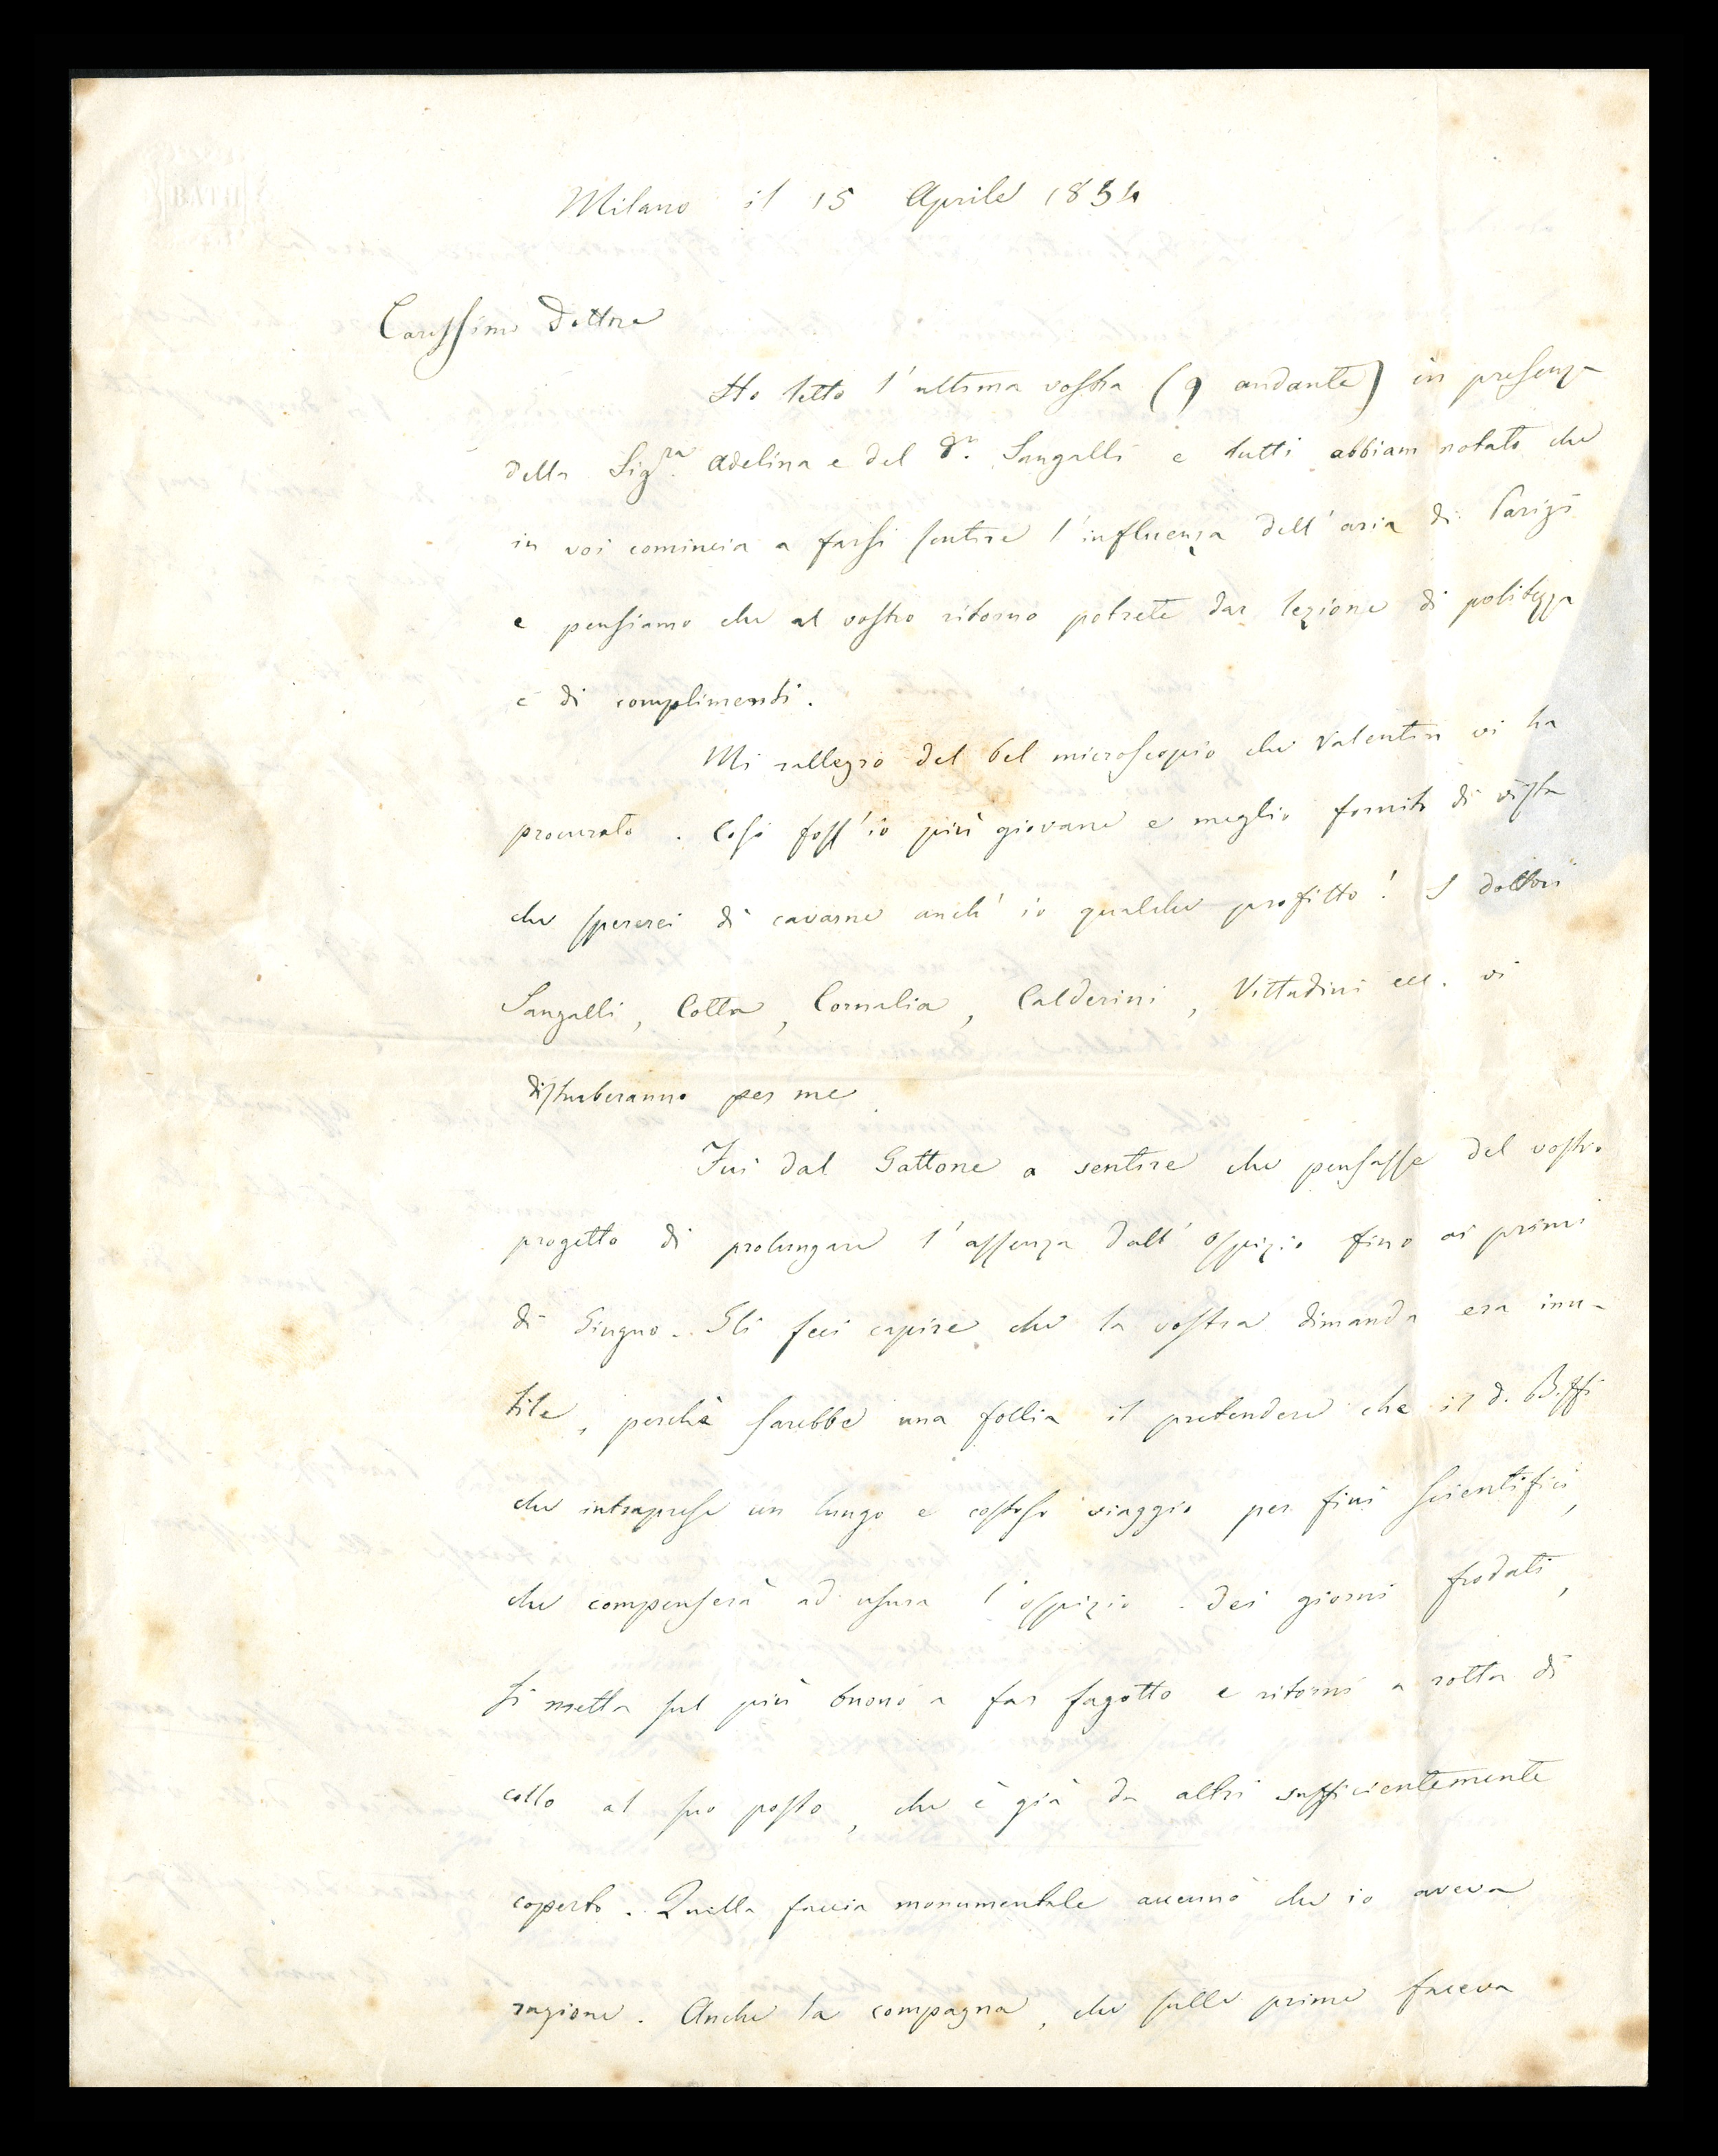 Milano il 15 Aprile 1854
Carissimo Dottore
Ho letto l'ultima vostra (9 andante) in presenza
della Sig.ra Adelina e del Dr. Sangalli e tutti abbiam notato che
in voi comincia a farsi sentire l'influenza dell'aria di Parigi
e pensiamo che al vostro ritorno potrete dar lezione di politezza
e di complimenti.
Mi rallegro del bel microscopio che Valentin vi ha
procurato. Così foss'io più giovane e meglio fornito di vista
che spererei di cavarne anch'io qualche profitto! I dottori
Sangalli, Cotta, Cornalia, Calderini, Vittadini ecc. vi
disturberanno per me.
Fui dal Gattone a sentire che pensasse del vostro
progetto di prolungare l'assenza dall'Ospizio fino ai primi
di Giugno. Gli feci capire che la vostra dimanda era inu-
tile, perchè sarebbe una follia il pretendere che il d. Biffi
che intraprese un lungo e costoso viaggio per fini scientifici,
che compenserà ad usura l'ospizio dei giorni frodati,
si metta sul più buono a far fagotto e ritorni a rotta di
collo al suo posto, che è già da altri sufficientemente
coperto. Quella faccia monumentale accennò che io aveva
ragione. Anche la compagna, che sulle prime faceva